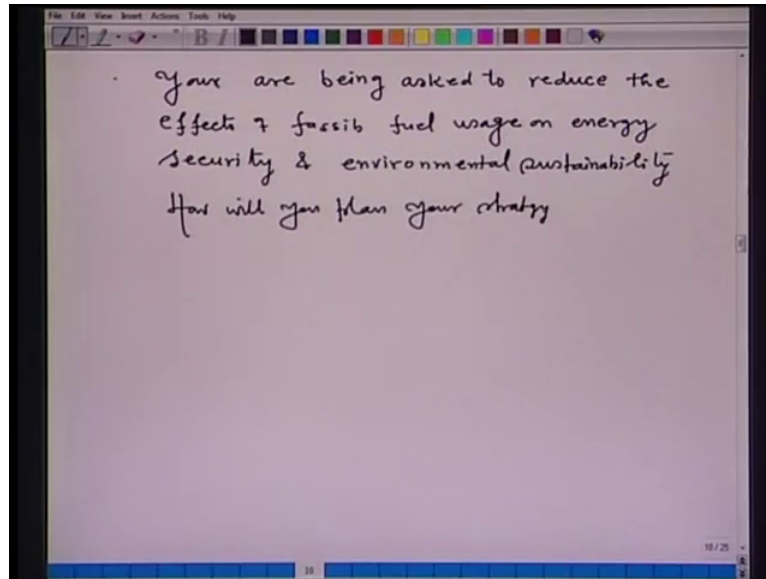 File Edit View Insert Actions Tools Help
B I
Your are being asked to reduce the
effects of fassib fuel usage on energy
security & environmental sustainability
How will you plan your stratgy
10/25
10